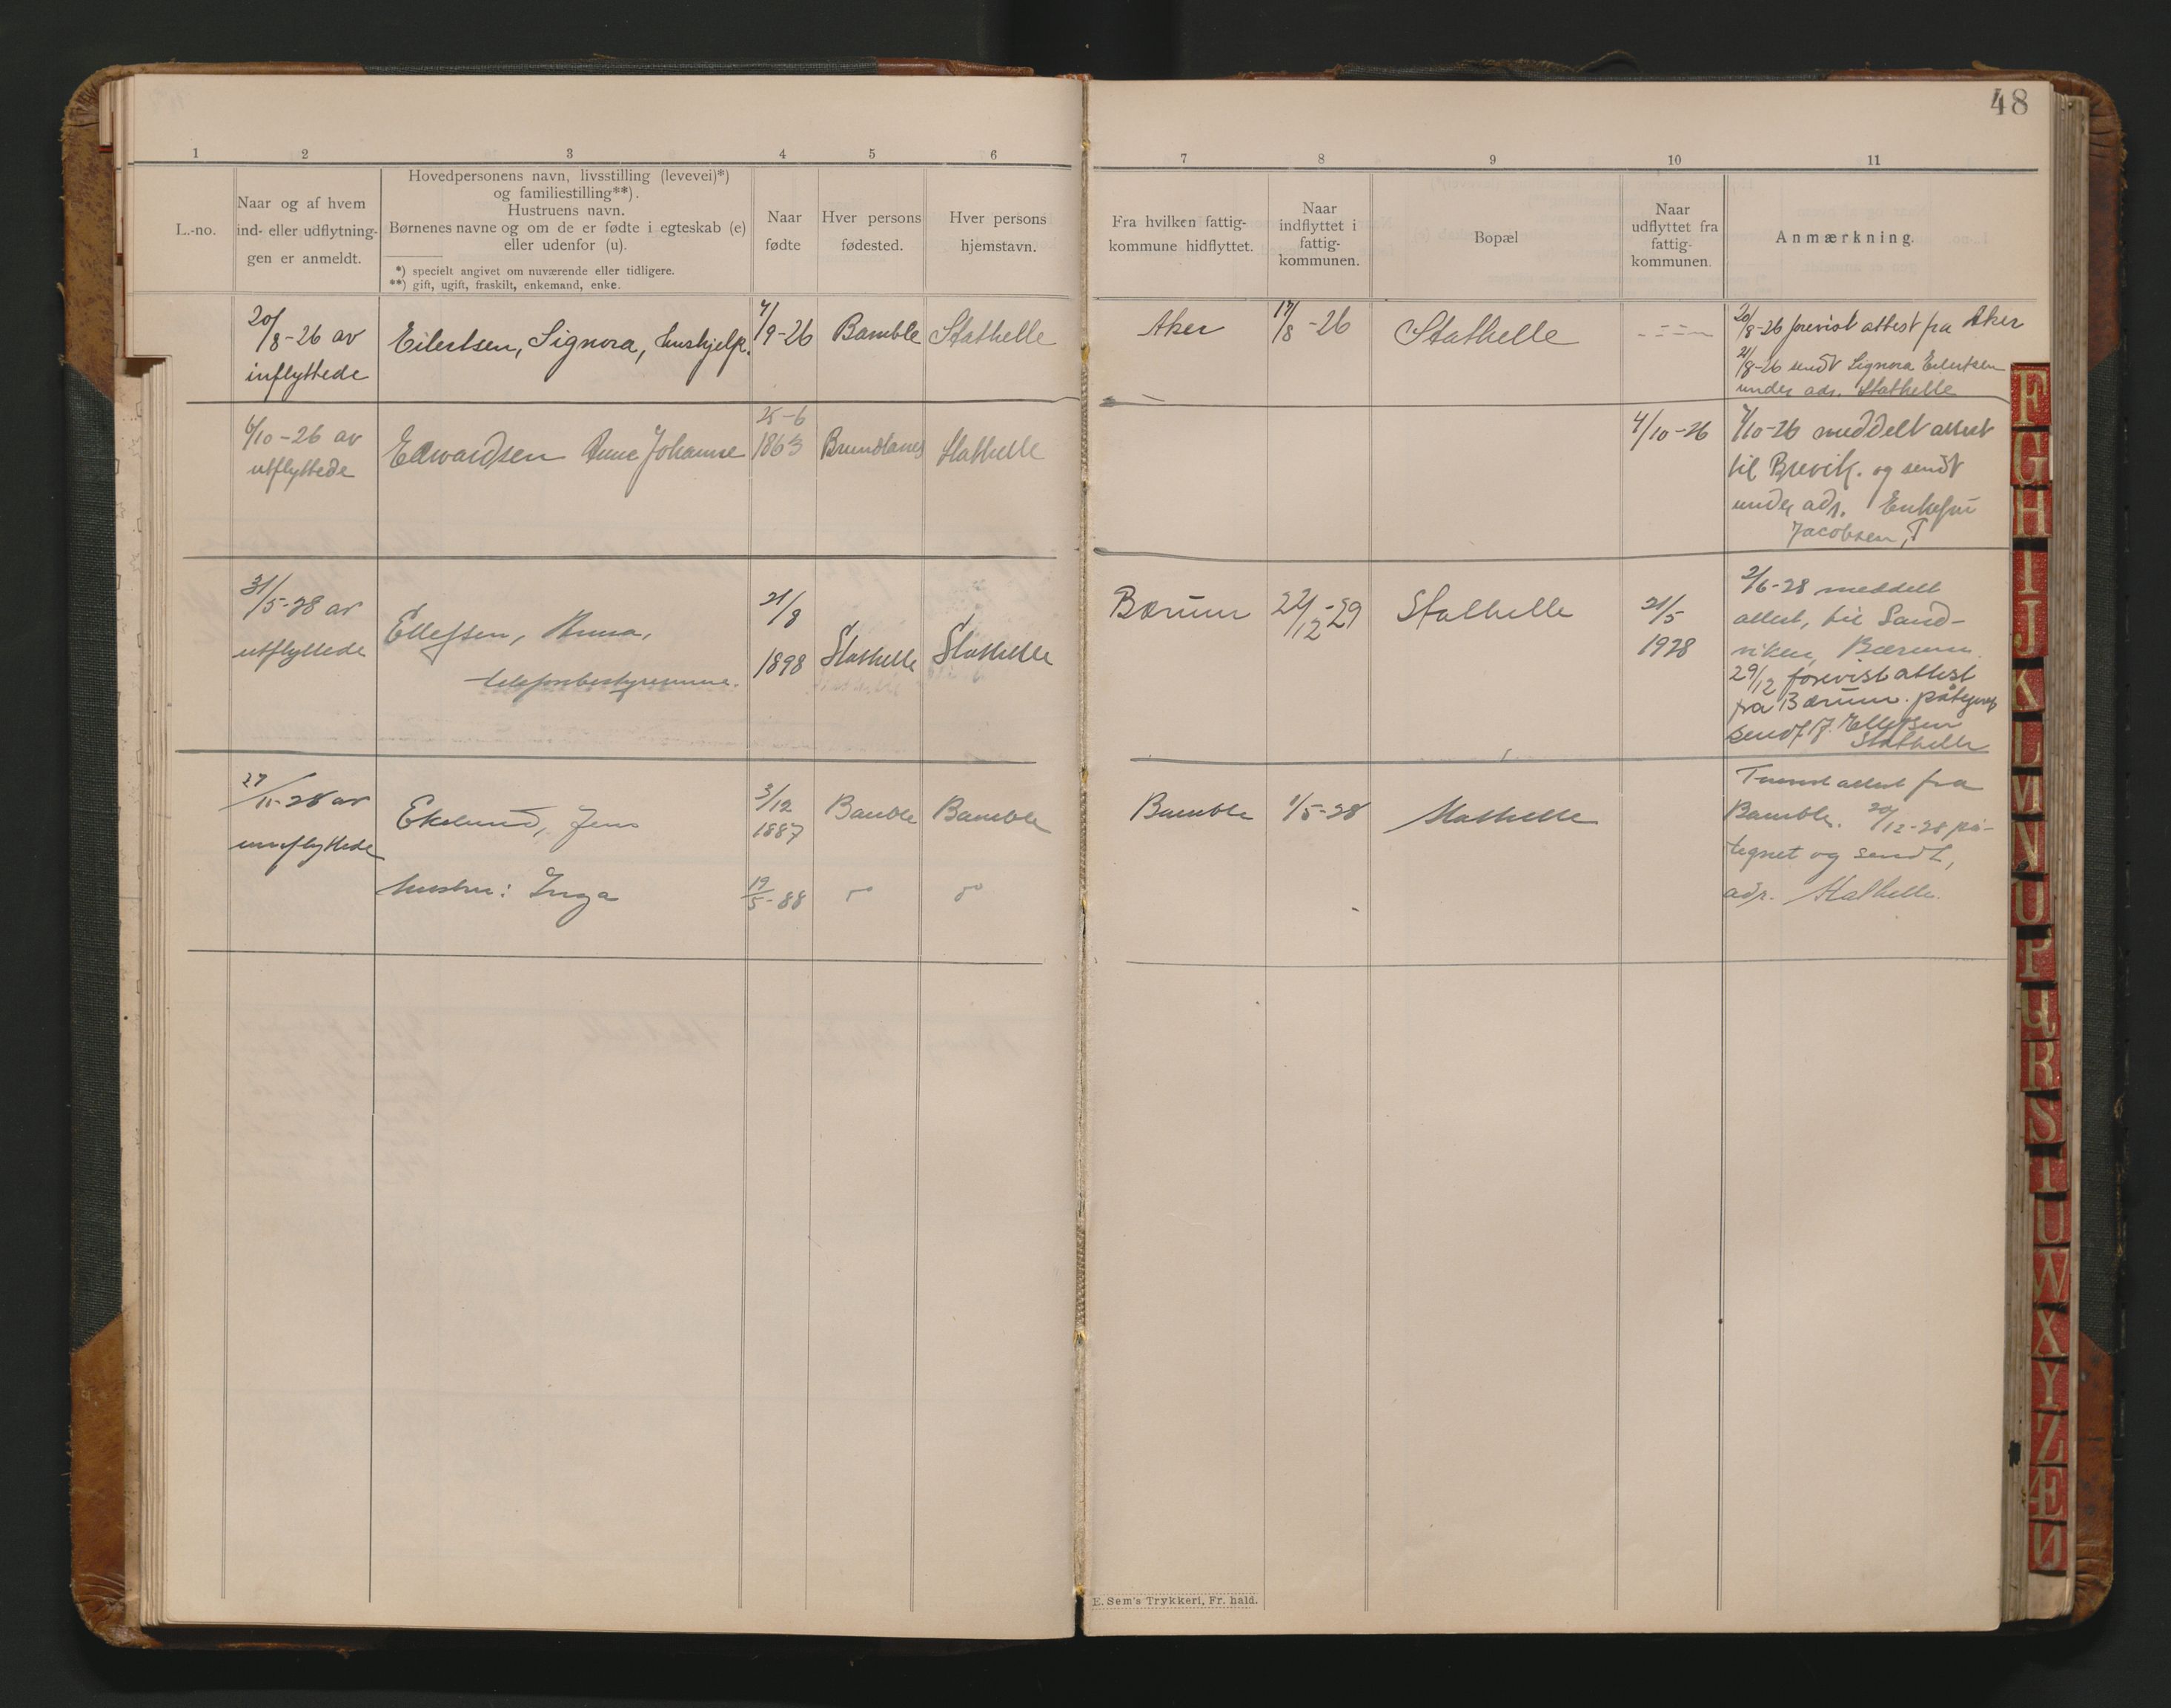 48
1 2 3 4 5 6
7 8 9 10 11
L.-no.
Naar og af hvem
ind- eller udflytnin-
gen er anmeldt.
Hovedpersonens navn, livsstilling (levevei)*)
og familiestilling**).
Hustruens navn.
Børnenes navne og om de er fødte i egteskab (e)
eller udenfor (u).
*) specielt angivet om nuværende eller tidligere.
**) gift, ugift, fraskilt, enkemand, enke.
Naar
fødte
Hver persons
fødested.
Hver persons
hjemstavn.
Fra hvilken fattig-
kommune hidflyttet.
Naar
indflyttet i
fattig-
kommunen.
Bopæl
Naar
udflyttet fra
fattig-
kommunen.
Anmærkning.
20/8-26 av
inflyttede
Eilertsen, Signora, hushjelp.
7/9-26
Bamble
Stathelle
Aker
17/8-26
Stathelle
20/8-26 forevist attest fra Aker
21/8-26 sendt Signora Eilertsen
under adr. Stathelle
6/10-26 av
utflyttede
Edwardsen Anne Johanne
25-6
1863
Brunlanes
Stathelle
4/10-26
7/10-26 meddelt attest
til Brevik. og sendt
under adr. Enkefru
Jacobsen,
31/5-28 av
utflyttede
Ellefsen, Anna,
telefonbestyrerinne.
21/8
1898
Stathelle
Stathelle
Bærum
22/12-29
Stathelle
21/5
1928
2/6-28 meddelt
attest, til Sand-
viken, Bærum.
29/12 forevist attest
fra Bærum. påtegnet
sendt F. Ellefsen
Stathelle
27/11-28 av
innflyttede
Ekelund, Jens
3/12
1887
Bamble
Bamble
Bamble
1/5-28
Stathelle
attest fra
Bamble. 20/12-28 på-
tegnet og sendt,
adr. Stathelle.
hustru: Inga
19/5-88
E. Sem's Trykkeri, Fr. hald.
F
G
H
I
J
K
L
M
N
O
P
Q
R
S
T
U
W
X
Y
Z
Æ
Ø